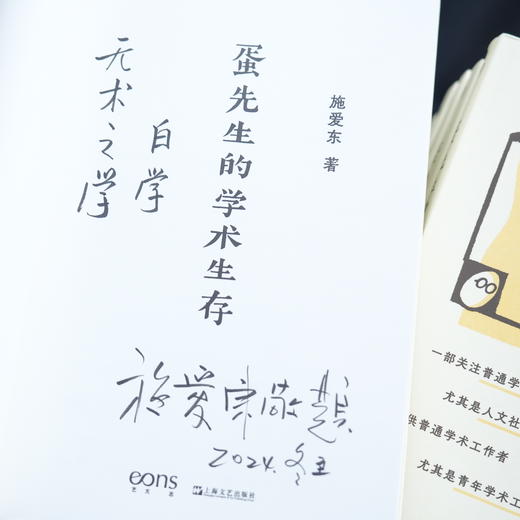 施爱东 著
蛋先生的学术生存
自学
无术之学
施爱东敬题
2024.冬
eons
艺文志
上海文艺出版社
一部关注普通学
尤其是人文社
供普通学术工作者
尤其是青年学术工